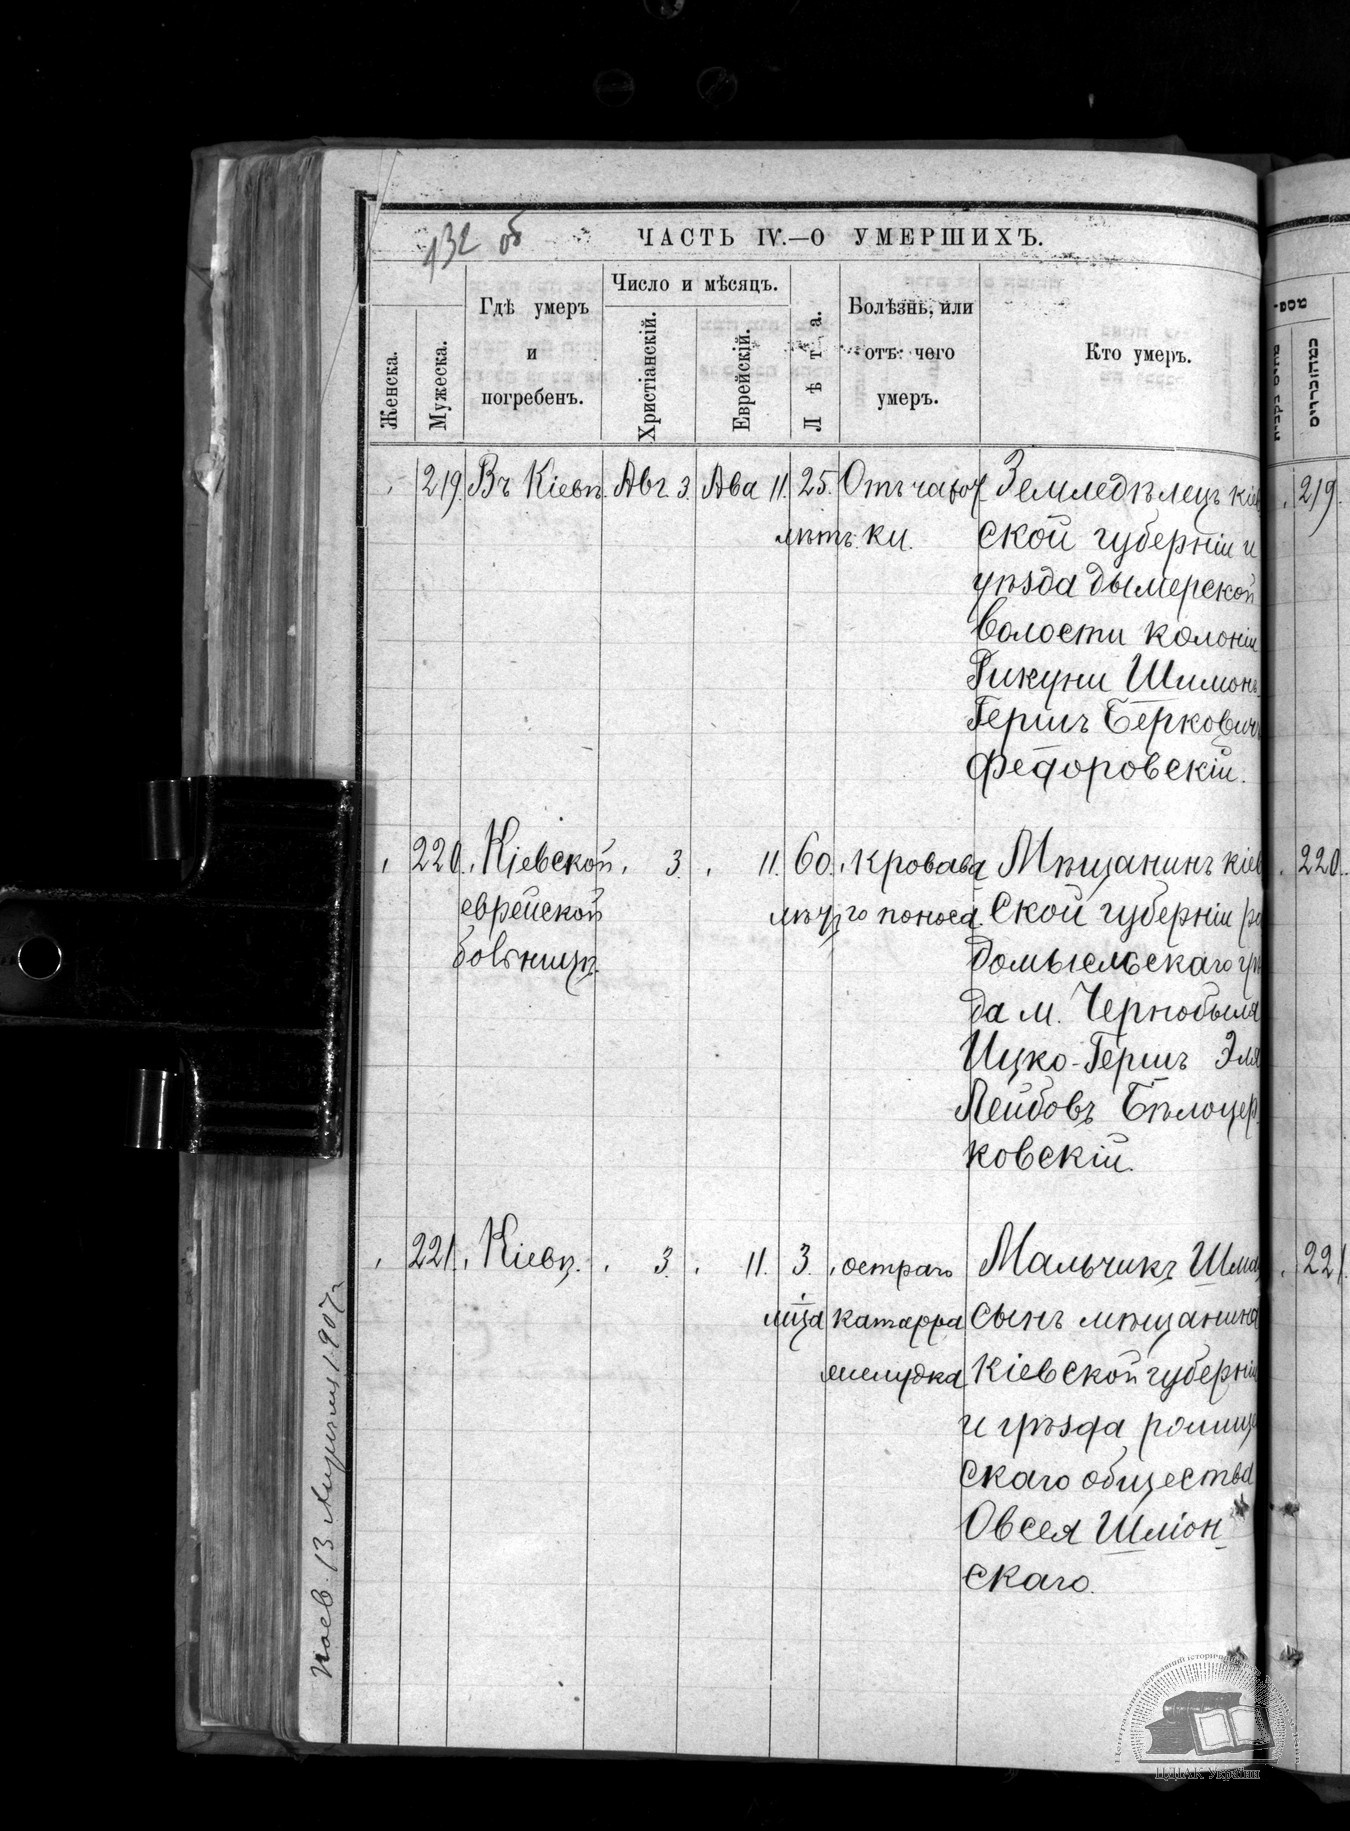 132 об
ЧАСТЬ IV.—О УМЕРШИХЪ.
Женска.
Мужеска.
Гдѣ умеръ
и
погребенъ.
Число и мѣсяцъ.
Христіанскій.
Еврейскій.
Лѣта.
Болѣзнь, или
отъ чего
умеръ.
Кто умеръ.
219. Въ Кіевѣ. Авг. 3. Ава 11. 25. Отъ чахот Земледѣлецъ кіев
лѣтъ. ки. ской губерніи и
уѣзда дымерской
волости колоніи
Рикуни Шимонъ-
Гершъ Берковичъ
Федоровскій.
220. Кіевской 3. 11. 60. кровава Мѣщанинъ кіев
еврейской го поноса. ской губерніи ра
больницѣ. домысльскаго уѣ
да м. Чернобыля
Ицко-Гершъ Эля
Лейбовъ Бѣлоцер
ковскій.
221. Кіевѣ. 3. 11. 3. остраго Мальчикъ
м-ца катарра сынъ мѣщанина
желудка Кіевской губерніи
и уѣзда
скаго общества
Овсея Шміон
скаго.
219.
220.
221.
ЦДІАК України